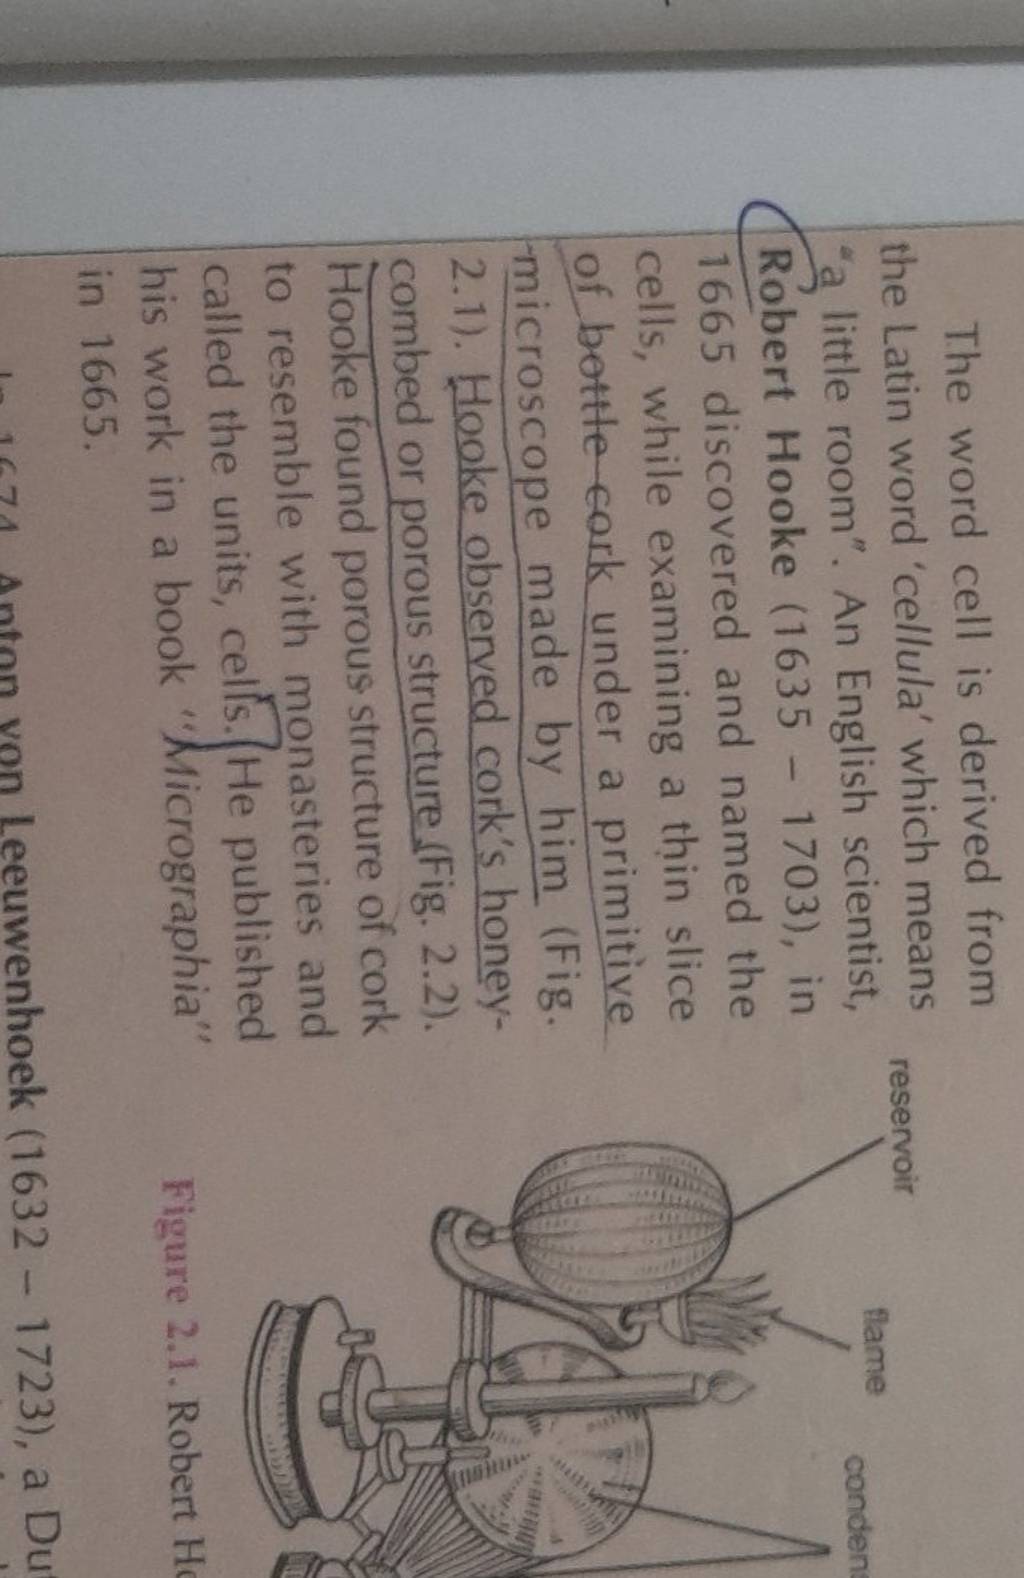 The word cell is derived from
the Latin word 'cellula' which means
"a little room". An English scientist,
Robert Hooke (1635 – 1703), in
1665 discovered and named the
cells, while examining a thin slice
of bottle cork under a primitive
microscope made by him (Fig.
2.1). Hooke observed cork's honey-
combed or porous structure (Fig. 2.2).
Hooke found porous structure of cork
to resemble with monasteries and
called the units, cells. He published
his work in a book "Micrographia"
in 1665.
1674 Anton von Leeuwenhoek (1632 – 1723), a
reservoir
flame
Figure 2.1. Robert